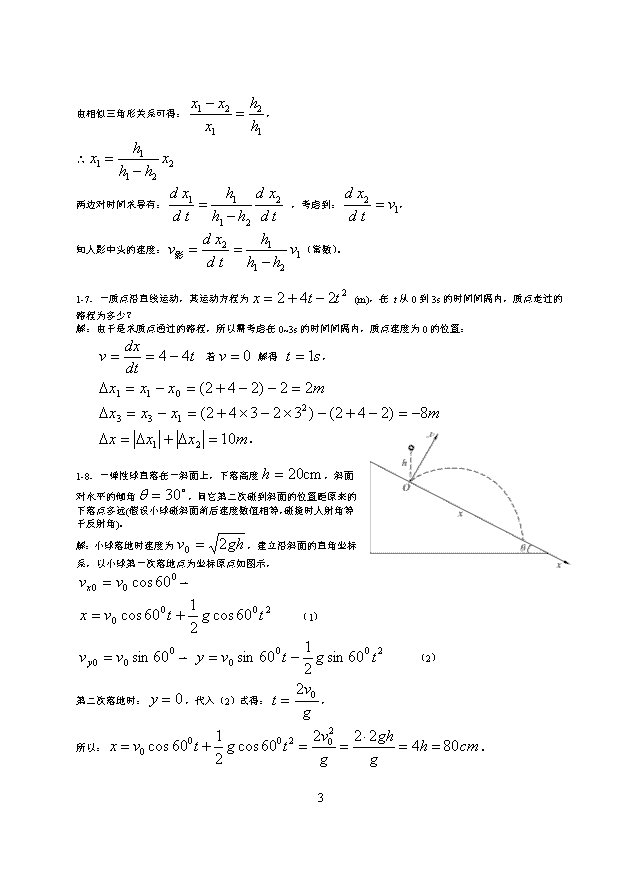 由相似三角形关系可得：(x₁ − x₂)/x₁ = h₂/h₁，
∴ x₁ = h₁/(h₁ − h₂) x₂
两边对时间求导有：d x₁/d t = h₁/(h₁ − h₂) d x₂/d t ，考虑到：d x₂/d t = v₁，
知人影中头的速度：v影 = d x₂/d t = h₁/(h₁ − h₂) v₁（常数）。
1-7．一质点沿直线运动，其运动方程为 x = 2 + 4t − 2t² (m)，在 t 从 0 到 3s 的时间间隔内，质点走过的
路程为多少？
解：由于是求质点通过的路程，所以需考虑在 0~3s 的时间间隔内，质点速度为 0 的位置：
v = dx/dt = 4 − 4t 若 v = 0 解得 t = 1s，
Δx₁ = x₁ − x₀ = (2 + 4 − 2) − 2 = 2m
Δx₃ = x₃ − x₁ = (2 + 4 × 3 − 2 × 3²) − (2 + 4 − 2) = −8m
Δx = |Δx₁| + |Δx₂| = 10m．
1-8．一弹性球直落在一斜面上，下落高度 h = 20cm，斜面
对水平的倾角 θ = 30°，问它第二次碰到斜面的位置距原来的
下落点多远(假设小球碰斜面前后速度数值相等，碰撞时人射角等
于反射角)。
解：小球落地时速度为 v₀ = √(2gh)，建立沿斜面的直角坐标
系，以小球第一次落地点为坐标原点如图示，
y
h
O
x
θ
x
vₓ₀ = v₀ cos 60⁰ →
x = v₀ cos 60⁰ t + 1/2 g cos 60⁰ t² （1）
v_y₀ = v₀ sin 60⁰ → y = v₀ sin 60⁰ t − 1/2 g sin 60⁰ t² （2）
第二次落地时：y = 0，代入（2）式得：t = 2v₀/g，
所以：x = v₀ cos 60⁰ t + 1/2 g cos 60⁰ t² = 2v₀²/g = 2·2gh/g = 4h = 80cm．
3